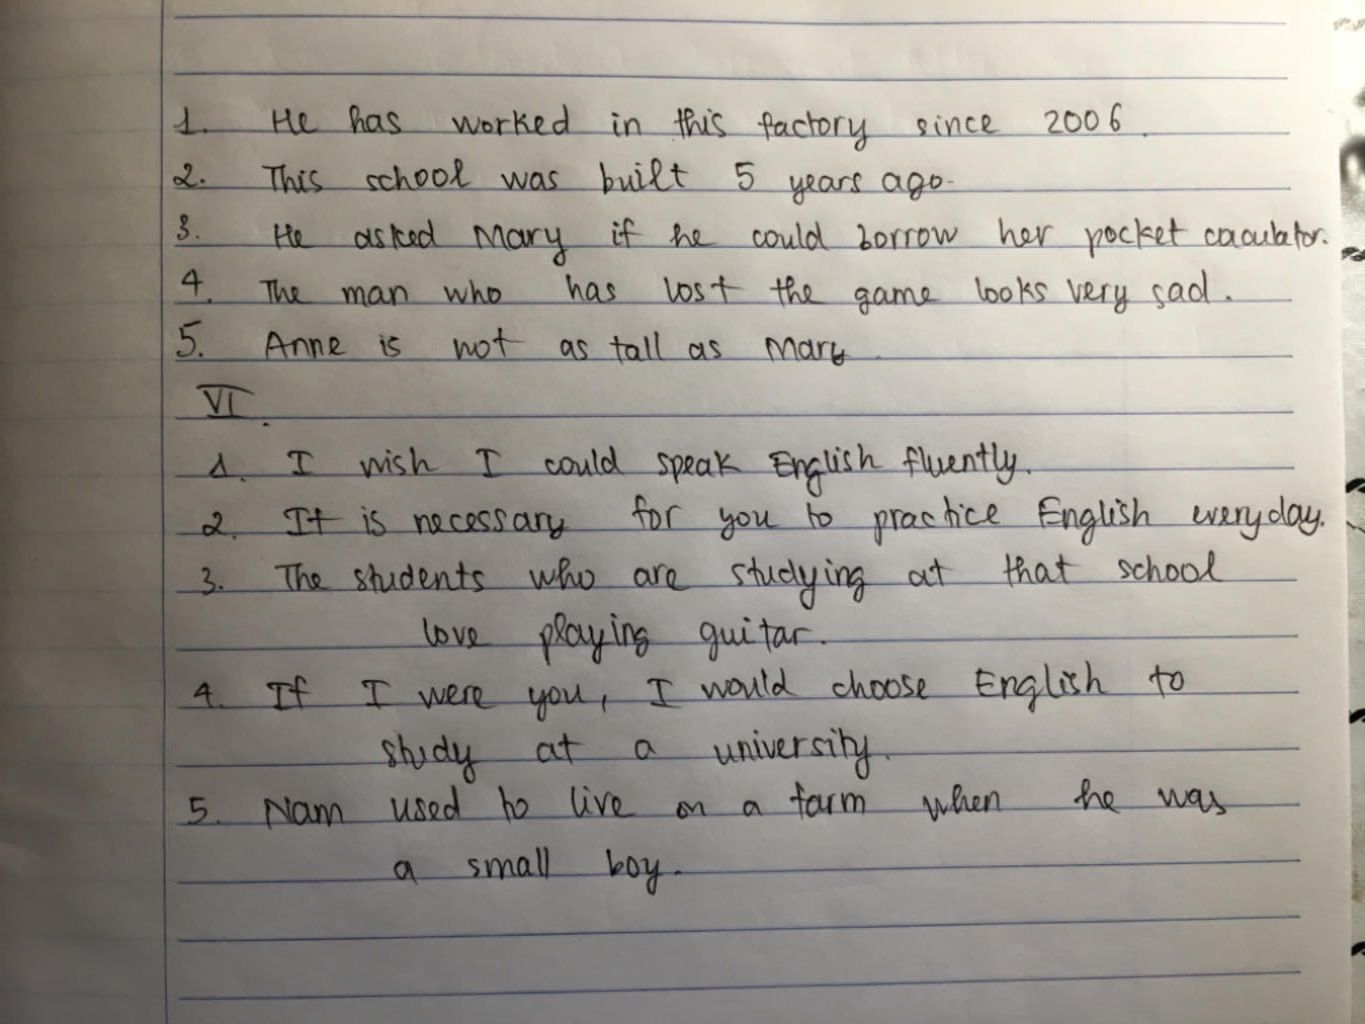 1. He has worked in this factory since 2006.
2. This school was built 5 years ago.
3. He asked Mary if he could borrow her pocket caculator.
4. The man who has lost the game looks very sad.
5. Anne is not as tall as Mary.
VI.
1. I wish I could speak English fluently.
2. It is necessary for you to practice English everyday.
3. The students who are studying at that school
love playing guitar.
4. If I were you, I would choose English to
study at a university.
5. Nam used to live on a farm when he was
a small boy.